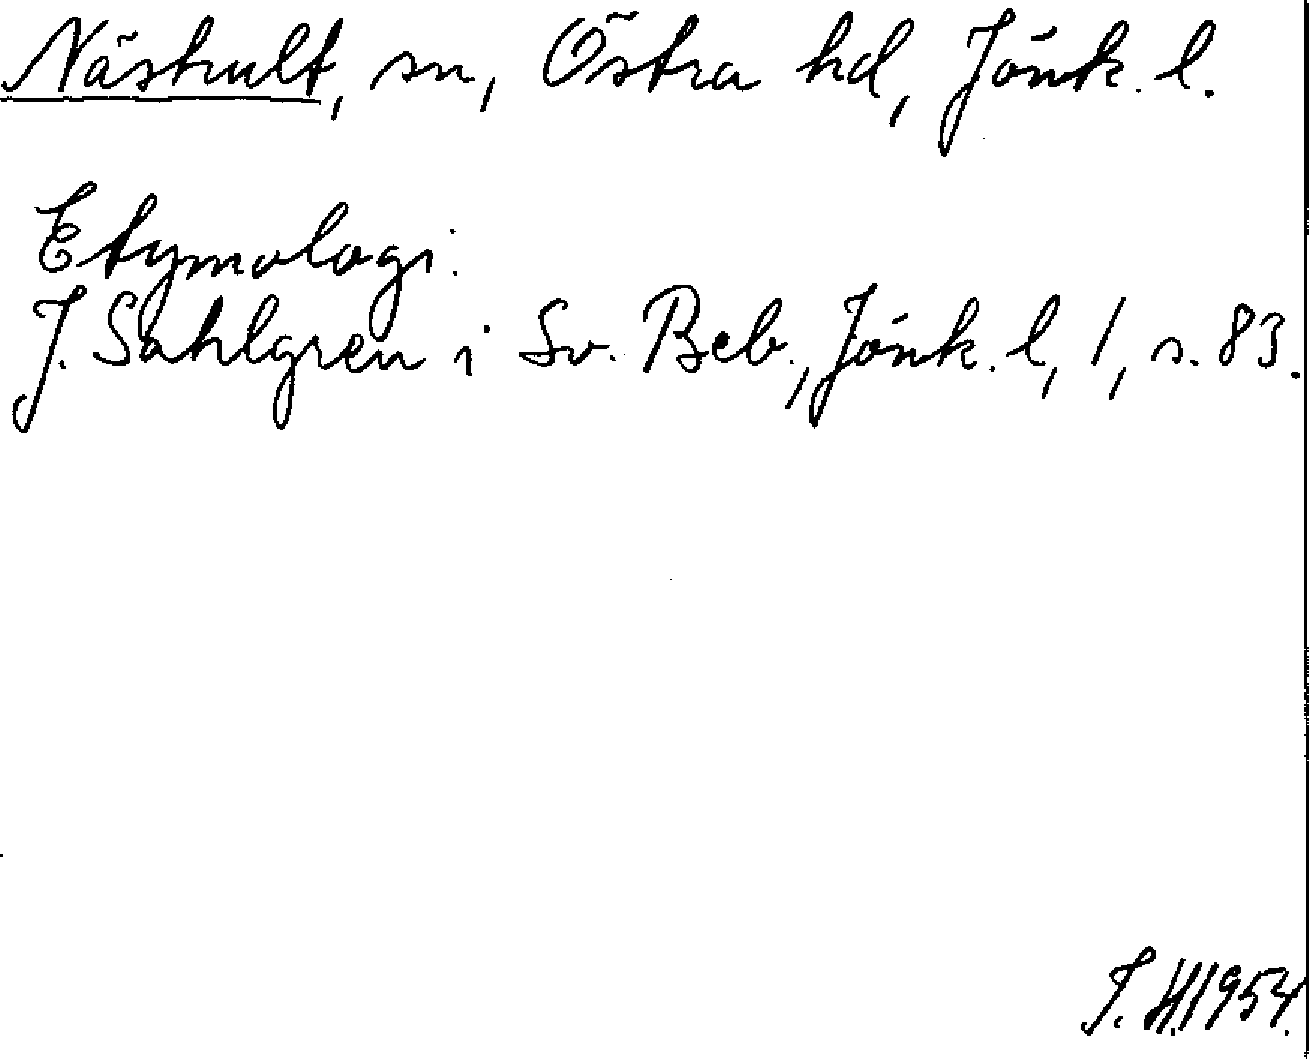 Näshult, sn, Östra hd, Jönk. l.
Etymologi.
J. Sahlgren i Sv. Beb., Jönk. l, 1, s. 83.
1954.